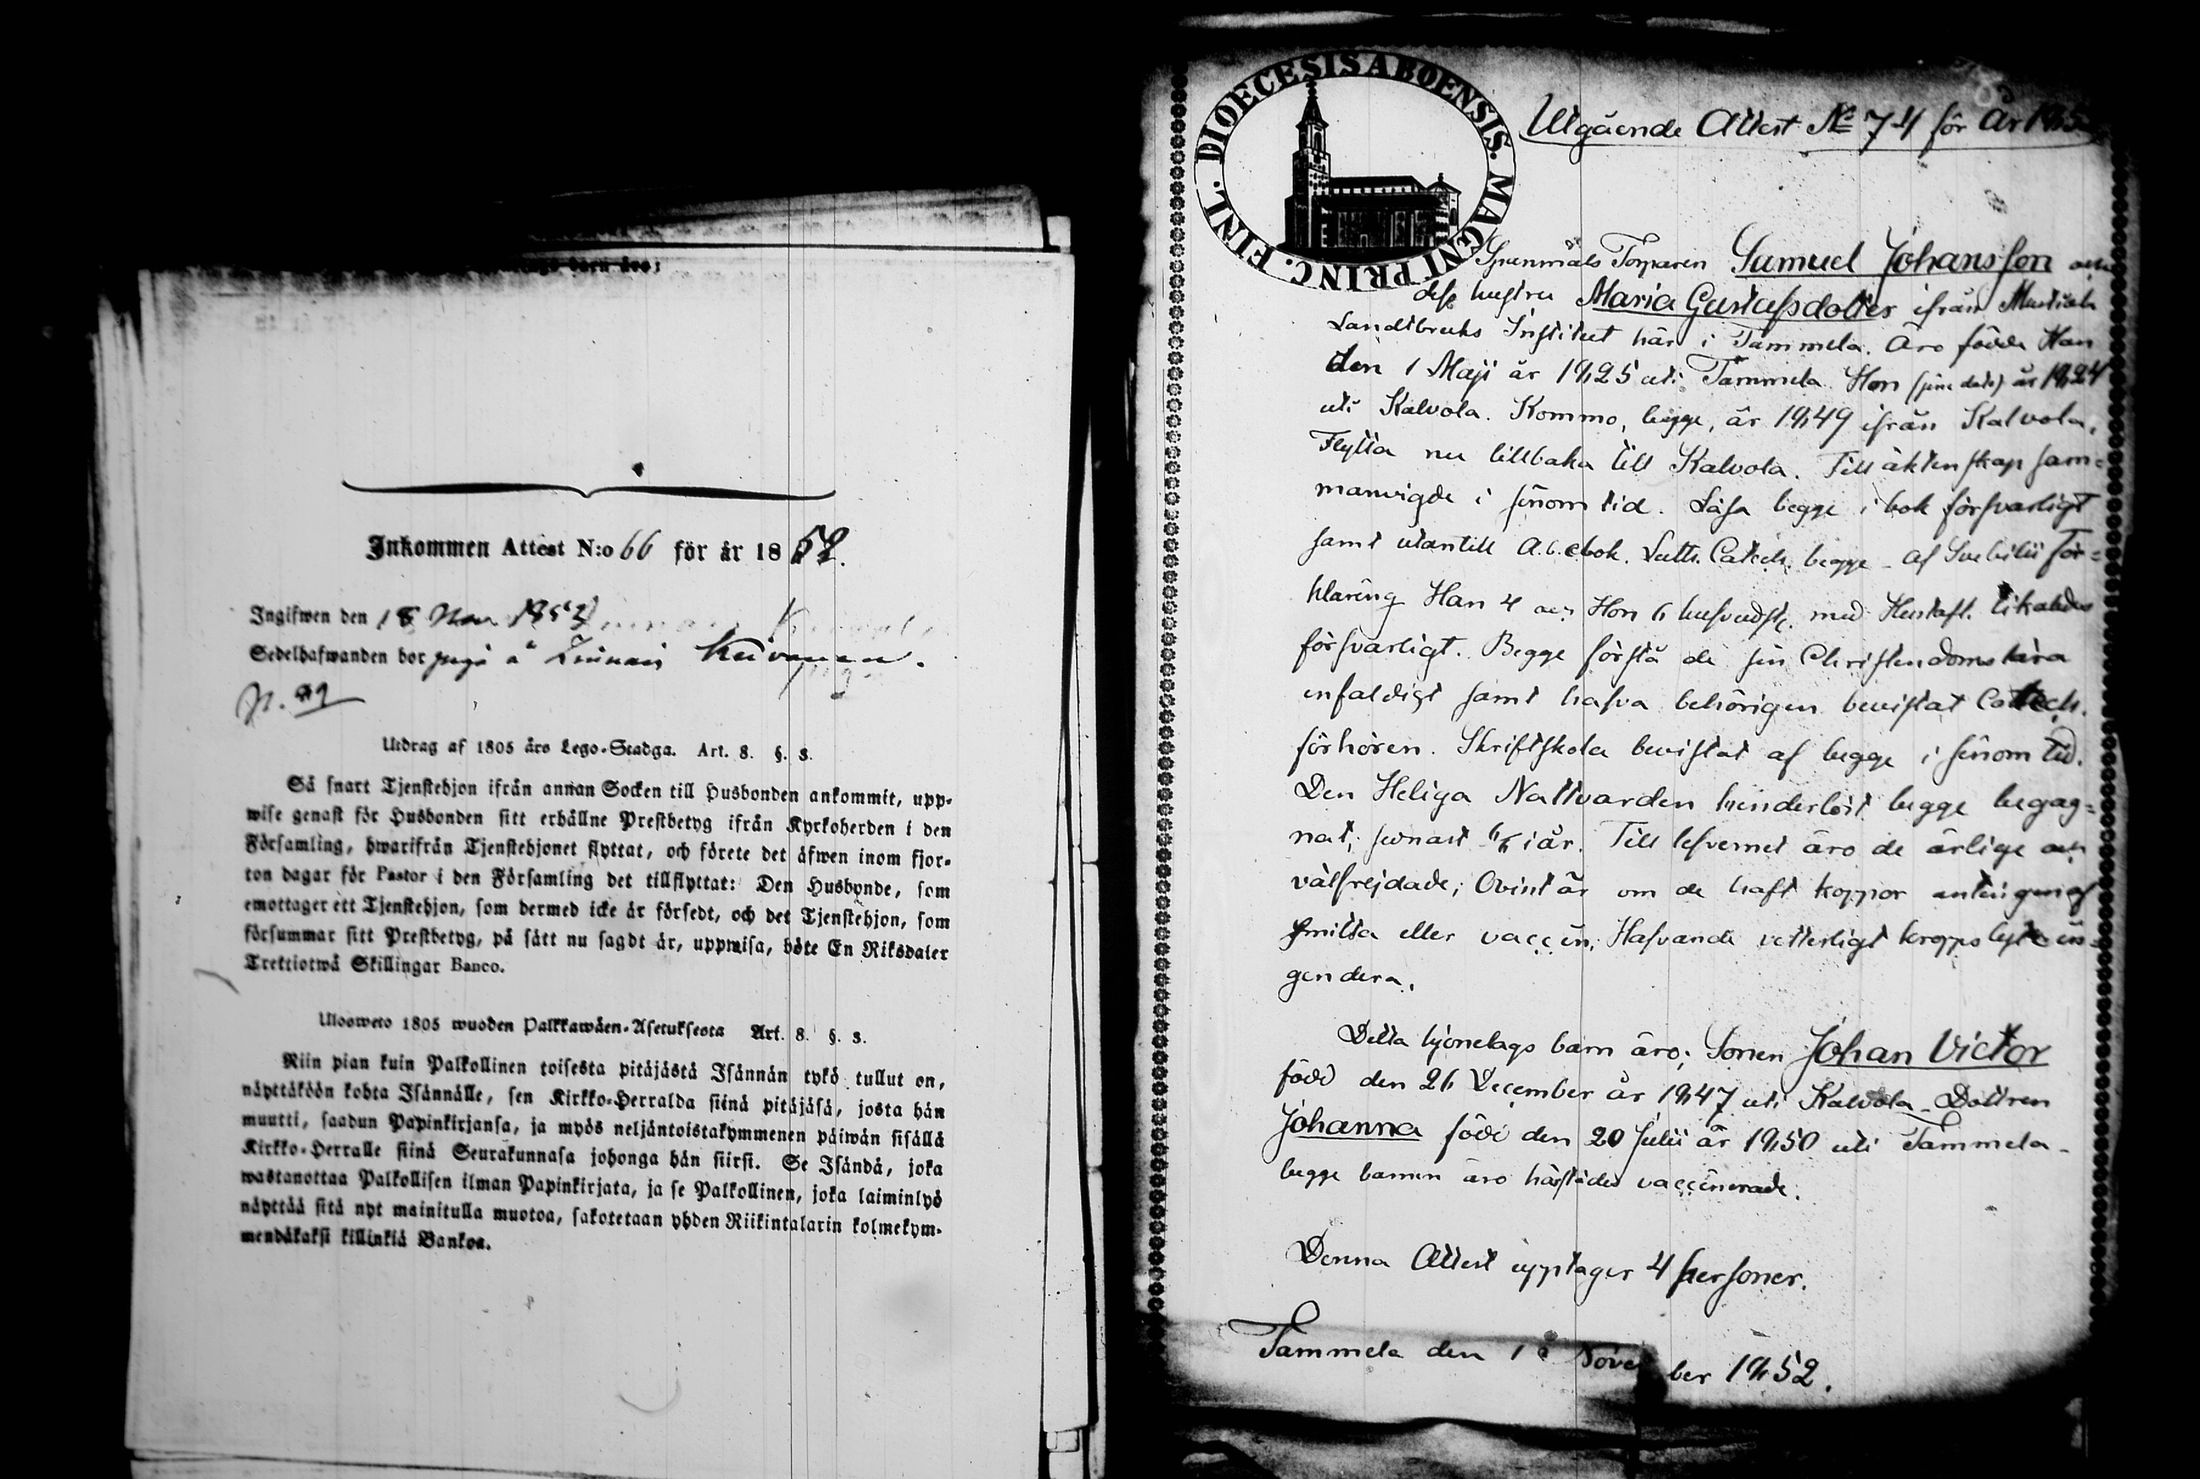 barn äro:
Inkommen Attest N:o 66 för år 1852.
Ingifwen den 18 Nov 1852
Sedelhafwanden bor
p. 99
Utdrag af 1805 års Lego-Stadga. Art. 8. §. 3.
Så snart Tjenstehjon ifrån annan Socken till Husbonden ankommit, upp-
wise genast för Husbonden sitt erhållne Prestbetyg ifrån Kyrkoherden i den
Församling, hwarifrån Tjenstehjonet flyttat, och förete det äfwen inom fjor-
ton dagar för Pastor i den Församling det tillflyttat: Den Husbonde, som
emottager ett Tjenstehjon, som dermed icke är försedt, och det Tjenstehjon, som
försummar sitt Prestbetyg, på sätt nu sagdt är, uppwisa, böte En Riksdaler
Trettiotwå Skillingar Banco.
Ulosweto 1805 wuoden Palkkawäen-Asetuksesta Art. 8. §. 3.
Niin pian kuin Palkollinen toisesta pitäjästä Isännän tykö tullut on,
näyttäköön kohta Isännälle, sen Kirkko-Herralda siinä pitäjäsä, josta hän
muutti, saadun Papinkirjansa, ja myös neljäntoistakymmenen päiwän sisällä
Kirkko-Herralle siinä Seurakunnasa johonga hän siirsi. Se Isändä, joka
wastanottaa Palkollisen ilman Papinkirjata, ja se Palkollinen, joka laiminlyö
näyttää sitä nyt mainitulla muotoa, sakotetaan yhden Riikintalarin kolmekym-
mendäkaksi killinkiä Bankoa.
DIOECESIS ABOENSIS. MAGNI PRINC. FINL.
Utgående Attest No 74 för År 1852
Spanmåls Torparen Samuel Johansson och
dess hustru Maria Gustafsdotter ifrån Mustiala
Landtbruks Institut här i Tammela. Äro födde Han
den 1 Maji år 1825 uti Tammela Hon (sine dato) år 1824
uti Kalvola. Kommo, begge, år 1849 ifrån Kalvola,
Flytta nu tillbaka till Kalvola. Till äktenskap sam-
manvigde i sinom tid. Läsa begge i bok försvarligt
samt utantill A.b.cbok. Luth. Catech. begge - af Svebilii För-
klaring Han 4 och Hon 6 hufvudst. med Hustafl. likaledes
försvarligt. Begge förstå de sin Christendoms lära
enfaldigt samt hafva behörigen bevistat Catech.
förhören. Skriftskola bevistat af begge i sinom tid.
Den Heliga Nattvarden hinderlöst begge begag-
nat, senast 6/6 i år. Till lefvernet äro de ärlige och
välfrejdade; Ovist är om de haft koppor antingen af
smitta eller vaccin; Hafvande vetterligt kroppslyte in-
gendera.
Detta hjonelags barn äro; Sonen Johan Victor
född den 26 December år 1847 uti Kalvola - Dottren
Johanna född den 20 Julii år 1850 uti Tammela -
begge barnen äro härstädes vaccinerade.
Denna Attest upptager 4 personer.
Tammela den November 1852.